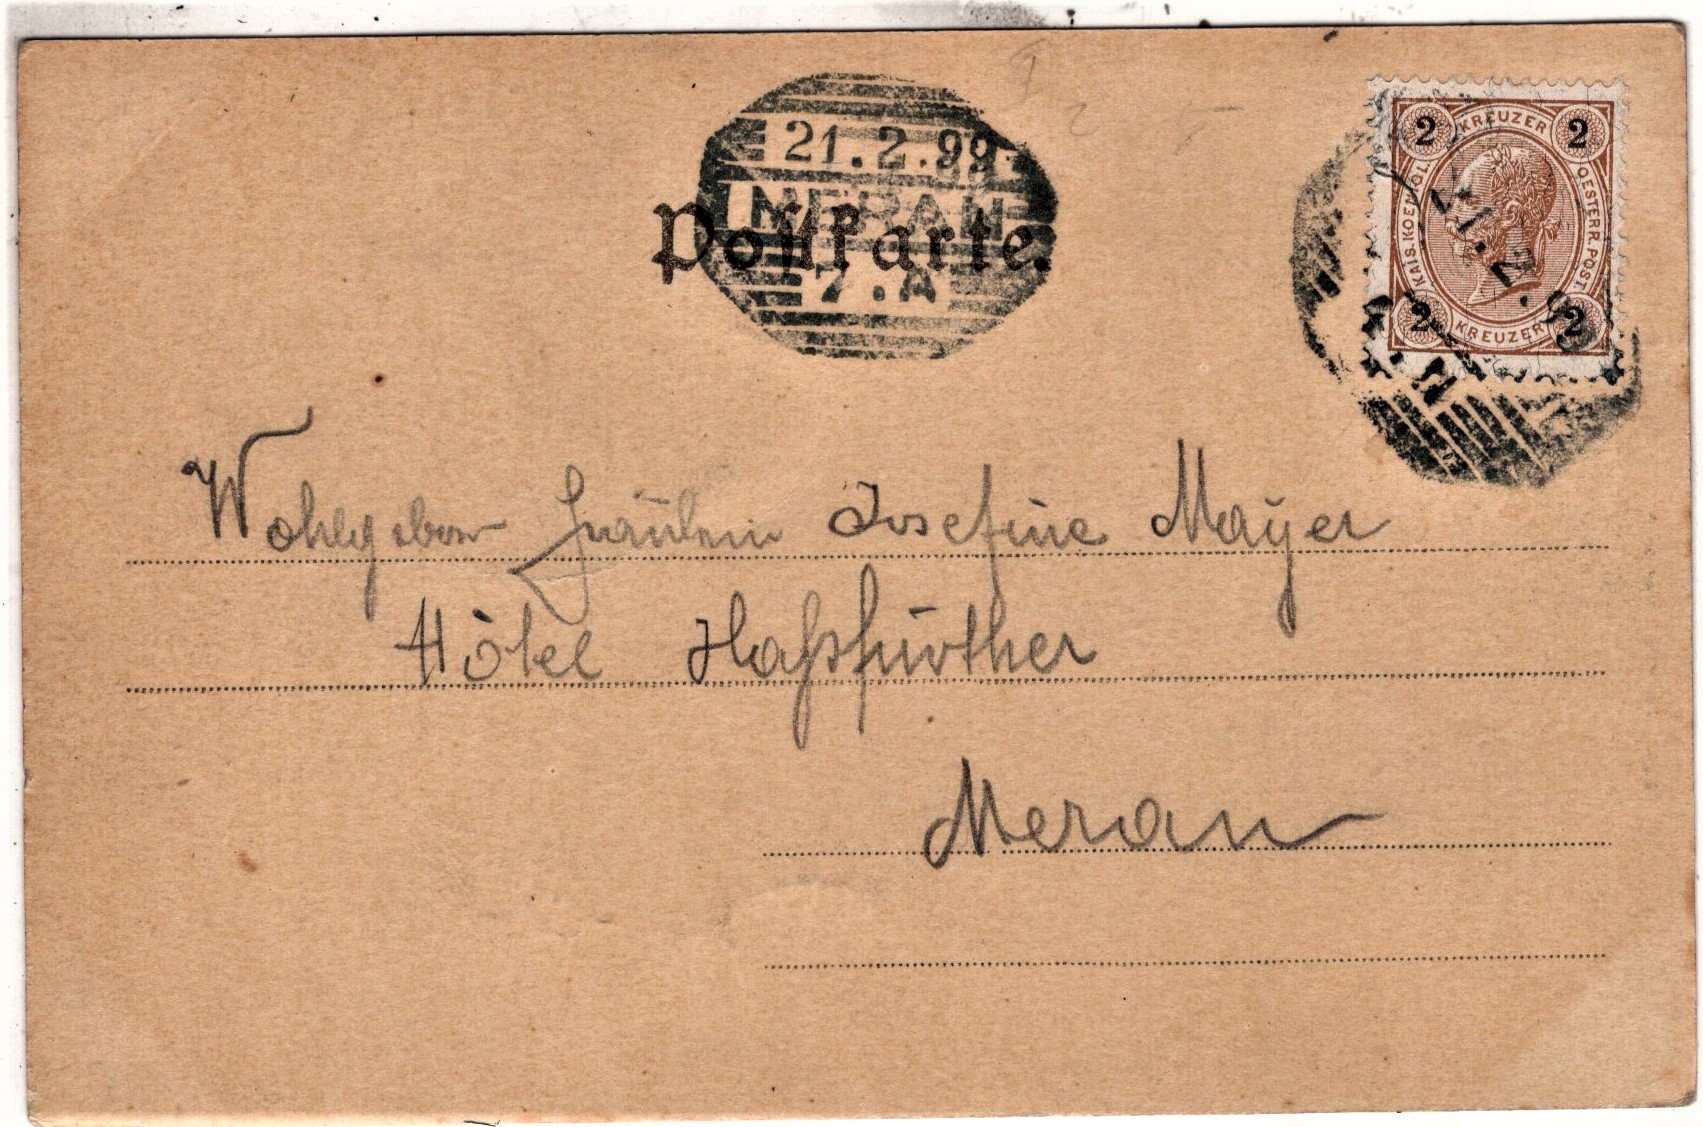 21.2.99
MERAN
7.A
Postkarte.
2 KREUZER 2
KAIS. KOENIGL. OESTERR. POST.
2 KREUZER 2
Wohlgeboren Fräulein Josefine Mayer
Hôtel Haßfürther
Meran